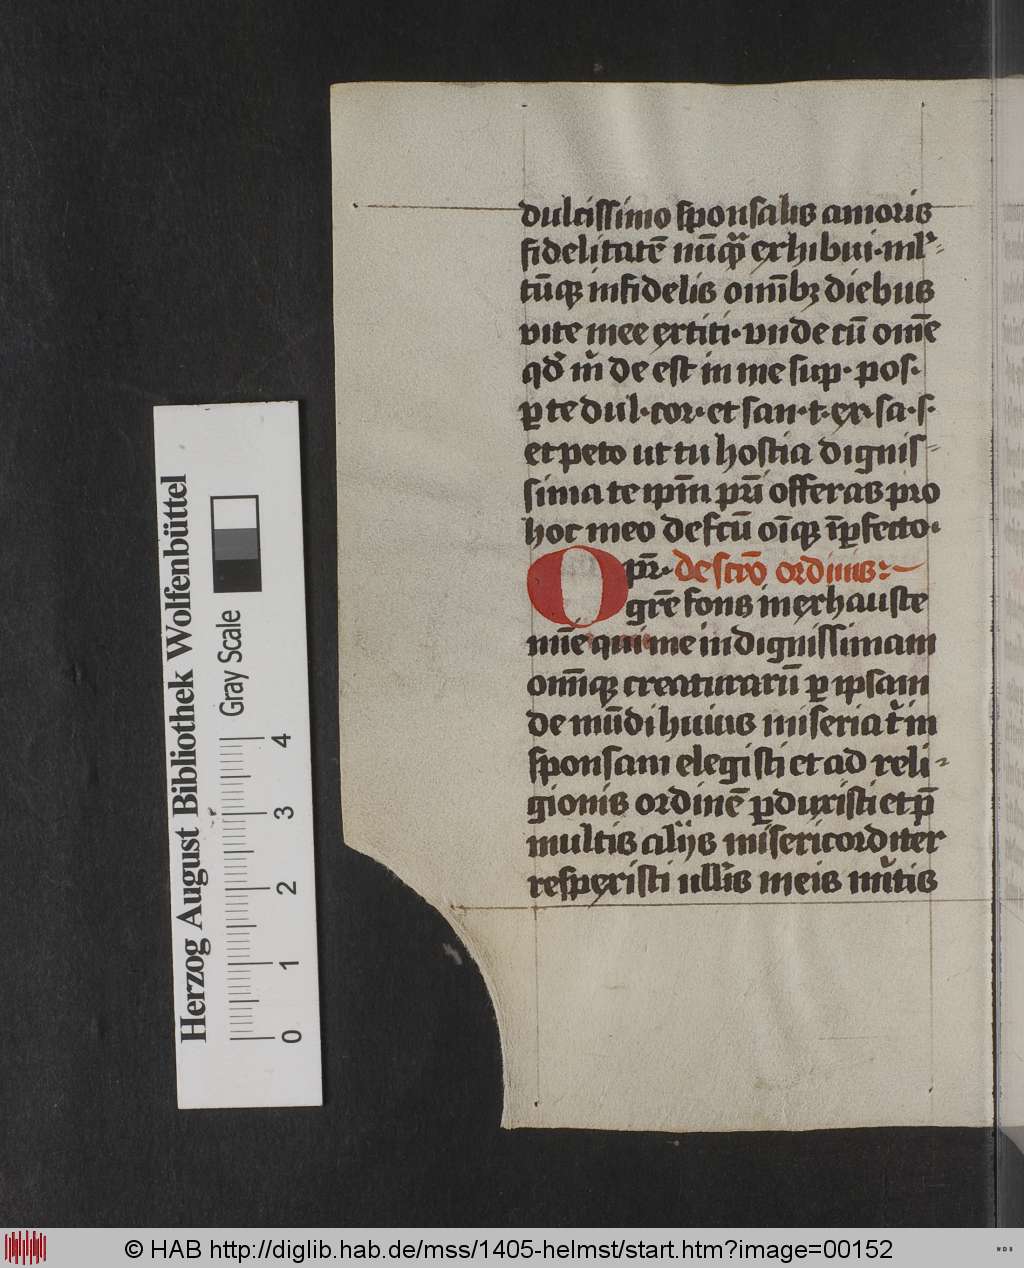 dulcissimo sponsalis amoris
fidelitatē nūq̄ꝫ exhibui· ml̓-
tūqꝫ infidelis om̄ibꝫ diebus
vite mee extiti· vnde cū om̄e
qd̓ m̓ de est in me sup· pos·
ꝑ te dul· cor· et san· t· ex· sa· s·
et peto ut tu hostia dignis-
sima te ip̄m pr̄i offeras pro
hoc meo defc̄u oīqꝫ īꝑfecto·
pr̄· de sc̄ro ordinis:
O gr̄e fons inexhauste
mīe qui me indignissimam
om̄iqꝫ creaturarū ꝑ ipsam
de mūdi huius miseria t̓ in
sponsam elegisti et ad reli-
gionis ordinē ꝑduxisti et p̄
multis alijs misericorditer
respexisti ull̓is meis m̓itis
Herzog August Bibliothek Wolfenbüttel
Gray Scale
0 1 2 3 4
© HAB http://diglib.hab.de/mss/1405-helmst/start.htm?image=00152